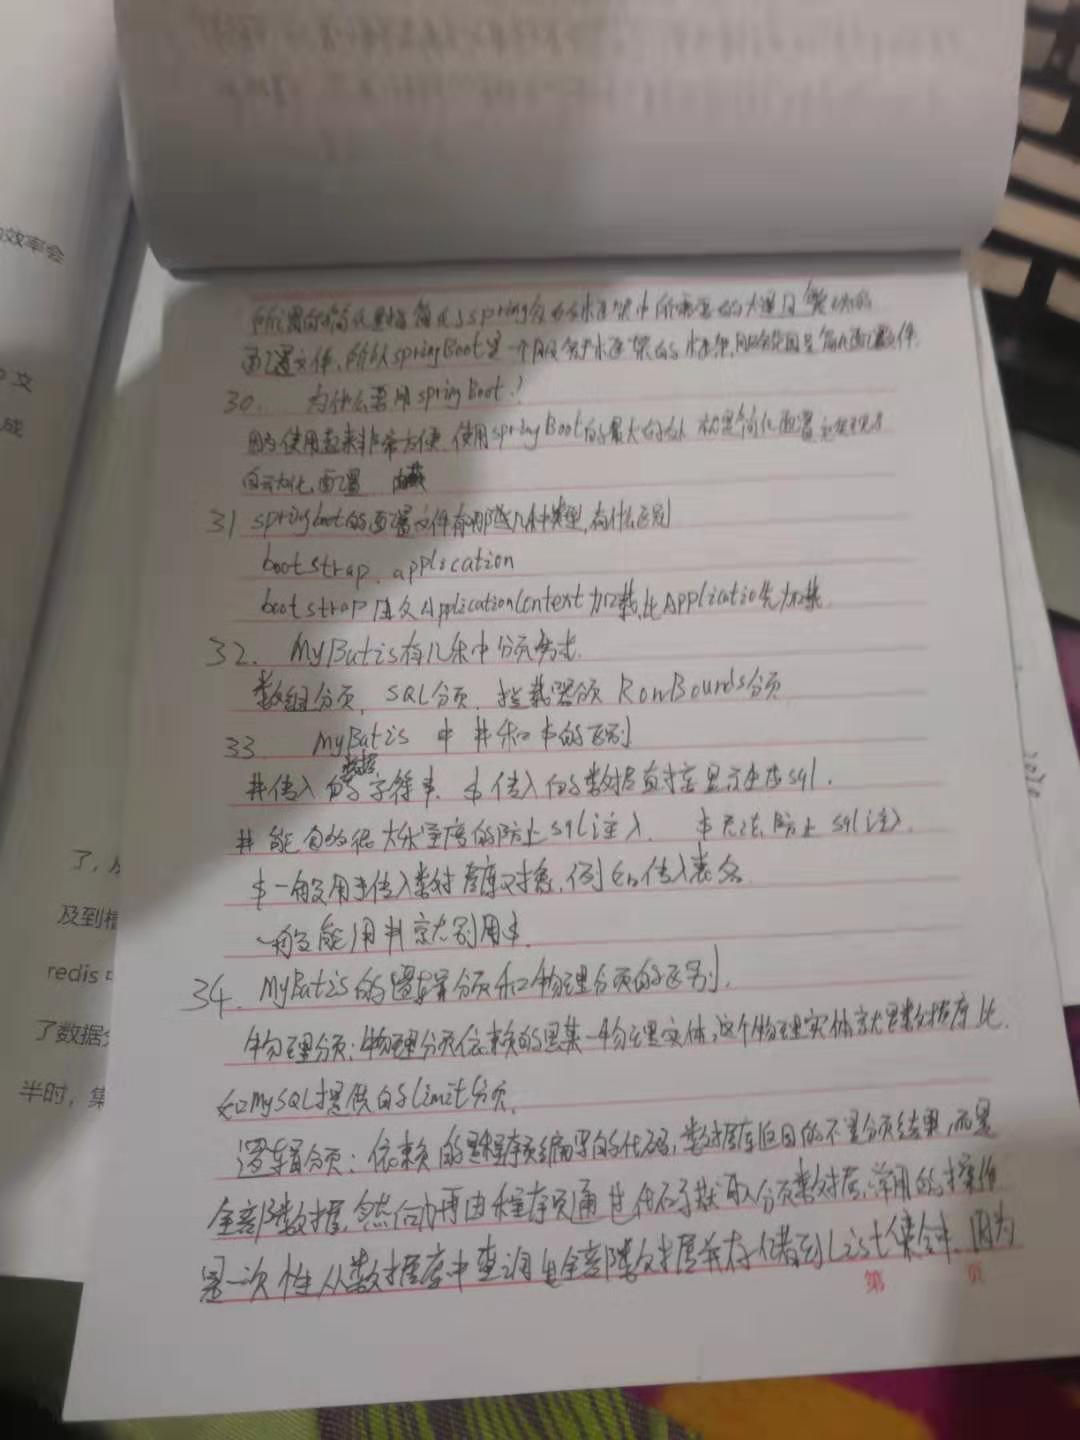 配置的简化是指简化了spring众多框架中所需要的大量且繁琐的
配置文件,所以springBoot是一个服务于框架的框架,服务范围是简化配置文件.
30. 为什么要用springBoot?
因为使用起来非常方便,使用springBoot的最大的好处就是简化配置
自动化配置
31 springboot的配置文件有哪几种类型,有什么区别
bootstrap. application
bootstrap 由父ApplicationContext加载,比Applicatio先加载
32. MyBatis有几种分页方式.
数组分页, SQL分页, 拦截器分页 RowBounds分页
33. MyBatis 中 #和$的区别
数据
#传入的字符串. $传入的数据直接显示生成sql.
#能够很大程度的防止sql注入. $无法防止sql注入.
$一般用于传入数据库对象,例如传入表名
一般能用#就别用$.
34. MyBatis的逻辑分页和物理分页的区别.
物理分页:物理分页依赖的是某一物理实体,这个物理实体就是数据库,比
如MySQL提供的limit分页.
逻辑分页:依赖的是程序员编写的代码,数据库返回的不是分页结果,而是
全部数据,然后再由程序员通过代码获取分页数据,常用的操作
是一次性从数据库中查询出全部数据并存储到List集合中,因为
第 页
的效率会
redis
了数据
半时,集
及到
文
成
了,